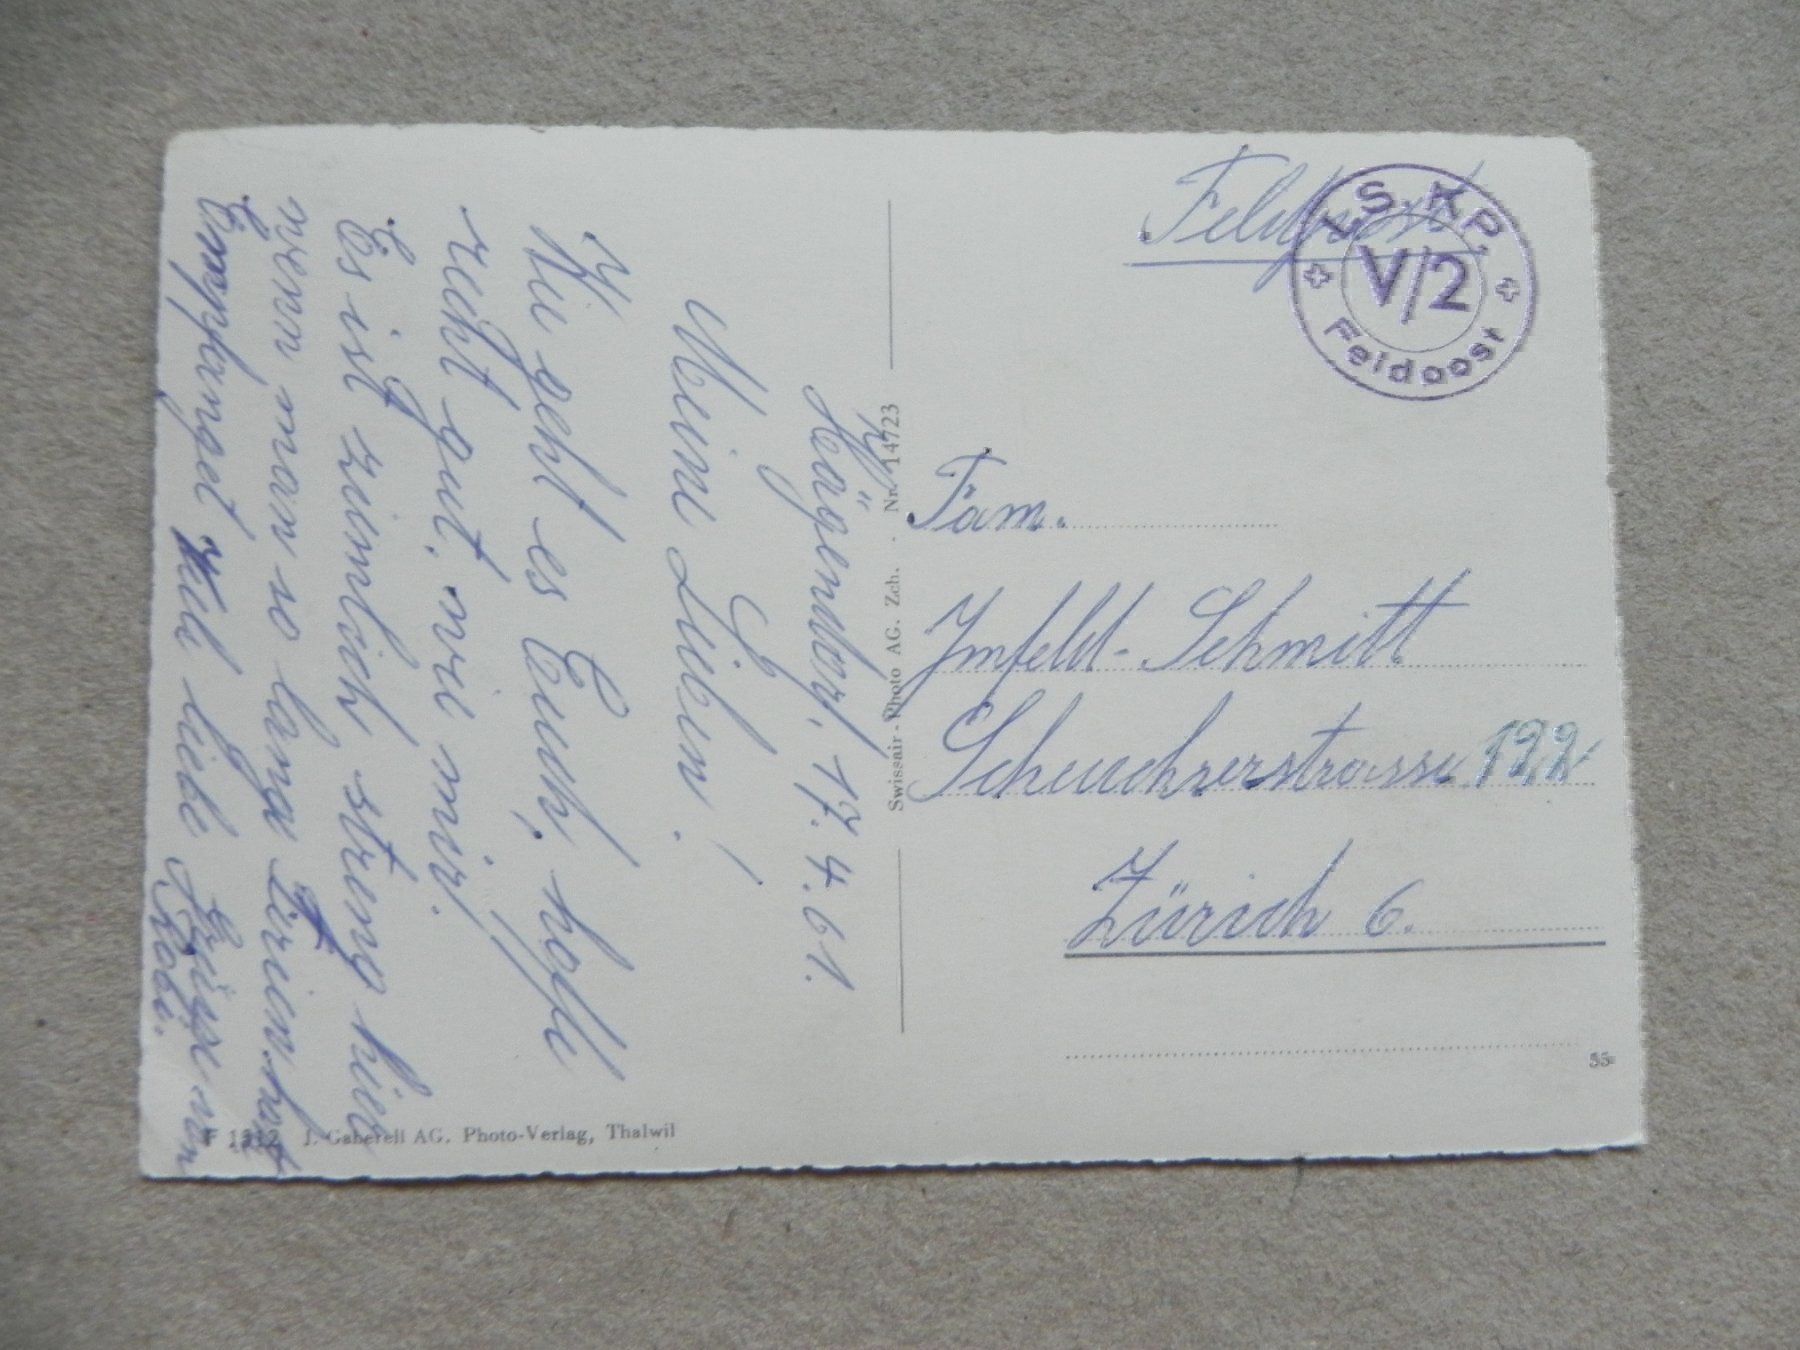 Hägendorf, 17.4.61.
Meine Lieben!
Wie geht es Euch, hoffe
recht gut, wie mir.
Es ist ziemlich streng hier
wenn man so lange Ferien hat
Empfanget viel liebe Grüsse von
Robi.
Feldpost
L.S. KP.
V/2
Feldpost
Fam.
Imfeld-Schmitt
Scheuchzerstrasse 122
Zürich 6.
Swissair-Photo AG. Zch. · Nr. 14723
F 1312 J. Gaberell AG. Photo-Verlag, Thalwil